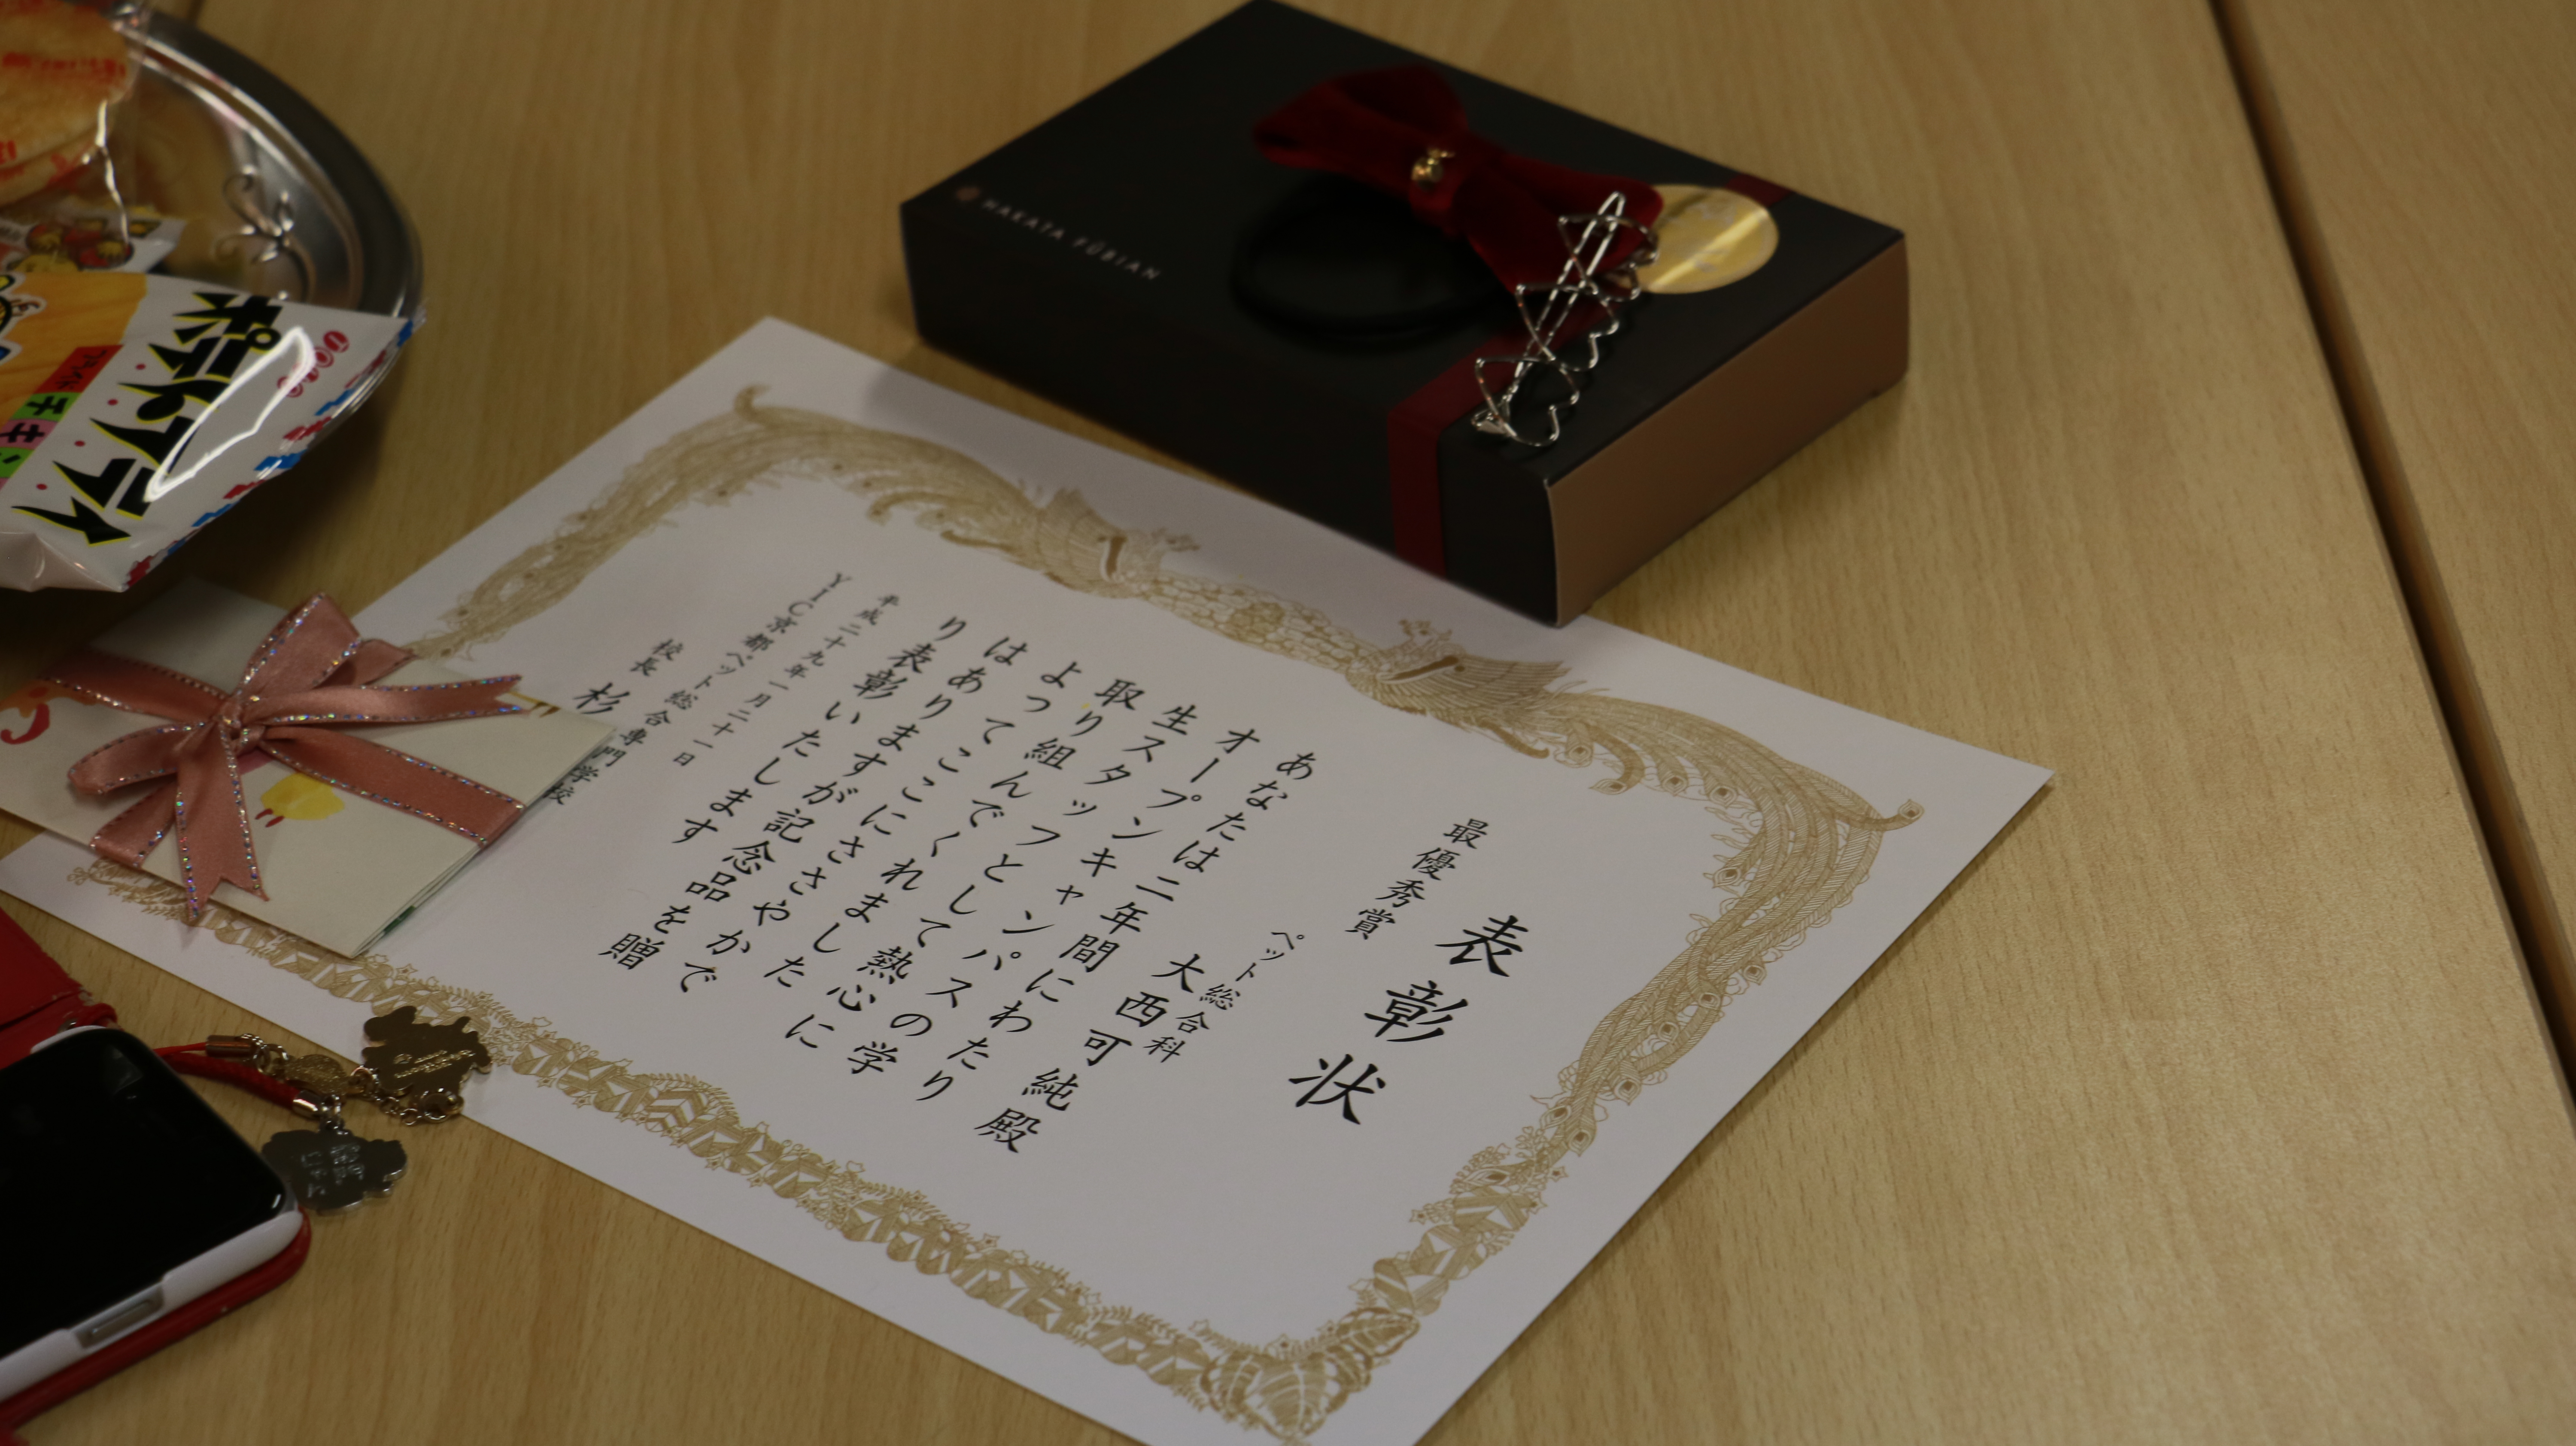 表彰状
最優秀賞
ペット総合科
大西可純殿
あなたは二年間にわたり
オープンキャンパスの学
生スタッフとして熱心に
取り組んでくれました
よってここにささやかで
はありますが記念品を贈
り表彰いたします
平成二十九年一月二十一日
YIC京都ペット総合専門学校
校長 杉
HAKATA FÛBIAN
ポテトフライ
フライド
チキン